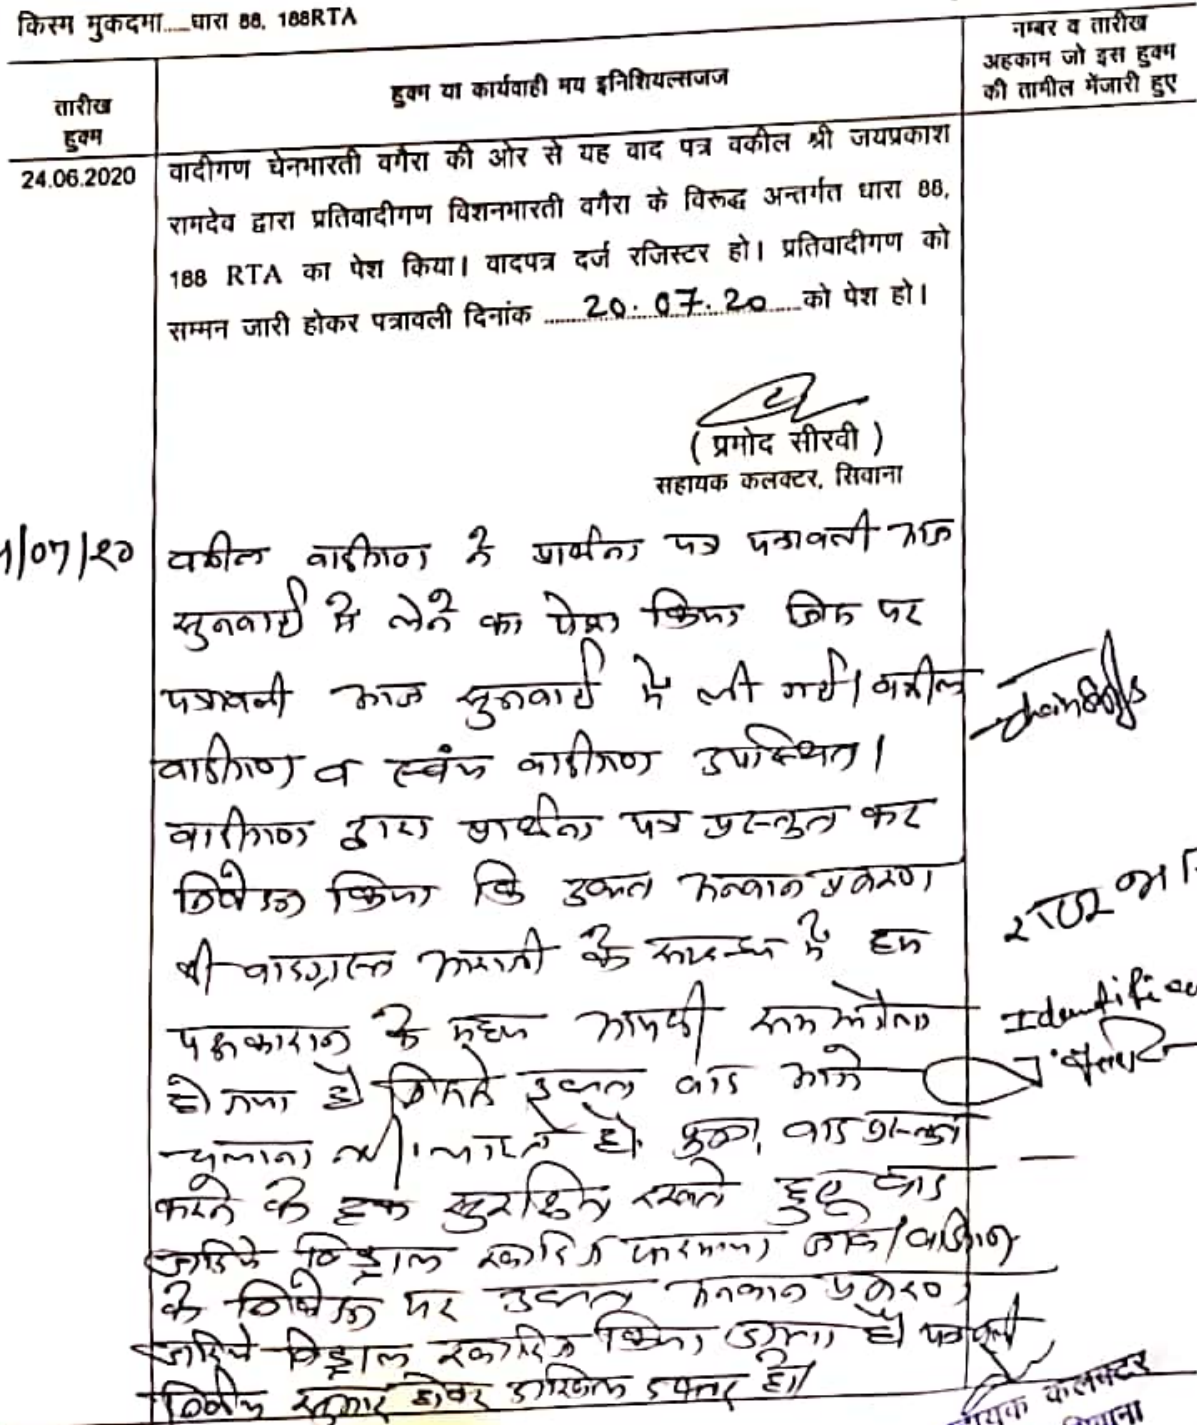 किस्म मुकदमा.....धारा 88, 188RTA
तारीख
हुक्म
हुक्म या कार्यवाही मय इनिशियल्सजज
नम्बर व तारीख
अहकाम जो इस हुक्म
की तामील मेंजारी हुए
24.06.2020
वादीगण चेनभारती वगैरा की ओर से यह वाद पत्र वकील श्री जयप्रकाश
रामदेव द्वारा प्रतिवादीगण विशनभारती वगैरा के विरूद्ध अन्तर्गत धारा 88,
188 RTA का पेश किया। वादपत्र दर्ज रजिस्टर हो। प्रतिवादीगण को
सम्मन जारी होकर पत्रावली दिनांक ........20.07.20......को पेश हो।
( प्रमोद सीरवी )
सहायक कलक्टर, सिवाना
/07/20
वकील वादीगण ने प्रार्थना पत्र पत्रावली आज
सुनवाई में लेने का पेश किया जिस पर
पत्रावली आज सुनवाई में ली गई। वकील
वादीगण व स्वंय वादीगण उपस्थित।
वादीगण द्वारा प्रार्थना पत्र प्रस्तुत कर
निवेदन किया कि उक्त अनवान प्रकरण
की वादग्रस्त आराजी के सम्बन्ध में हम
पक्षकारान के मध्य आपसी समझौता
हो गया है जिससे उक्त वाद आगे
चलाना नहीं चाहते है। पुनः वाद प्रस्तुत
करने के हक सुरक्षित रखते हुए वाद
जरिये विड्राल खारिज फरमाया जावे। वादीगण
के निवेदन पर उक्त अनवान प्रकरण
जरिये विड्राल खारिज किया जाता है। पत्रावली
फैसल शुमार होकर दाखिल दफ्तर हो।
Identified
कलक्टर
सिवाना